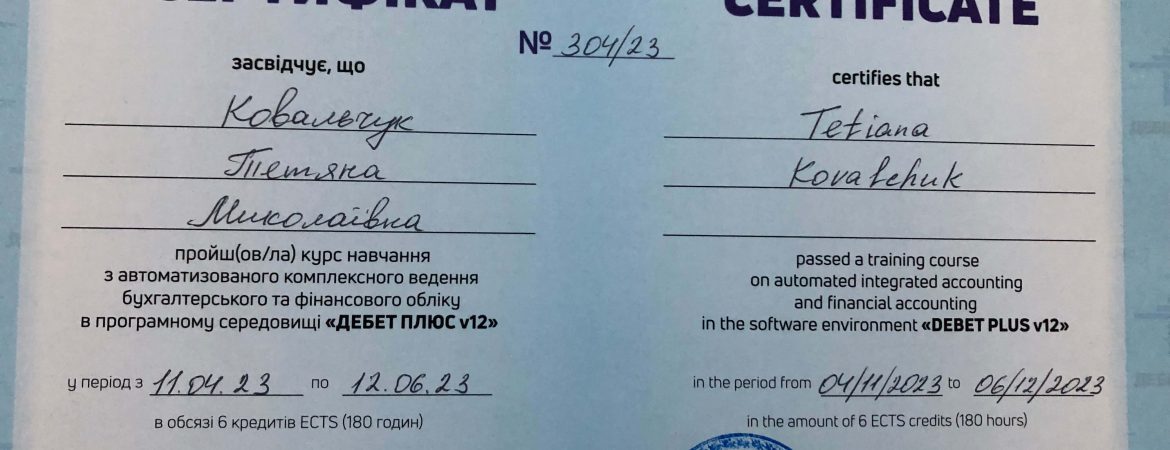 СЕРТИФІКАТ
№ 304/23
засвідчує, що
Ковальчук
Тетяна
Миколаївна
пройш(ов/ла) курс навчання
з автоматизованого комплексного ведення
бухгалтерського та фінансового обліку
в програмному середовищі «ДЕБЕТ ПЛЮС v12»
у період з 11.04.23 по 12.06.23
в обсязі 6 кредитів ECTS (180 годин)
CERTIFICATE
certifies that
Tetiana
Kovalchuk
passed a training course
on automated integrated accounting
and financial accounting
in the software environment «DEBET PLUS v12»
in the period from 04/11/2023 to 06/12/2023
in the amount of 6 ECTS credits (180 hours)